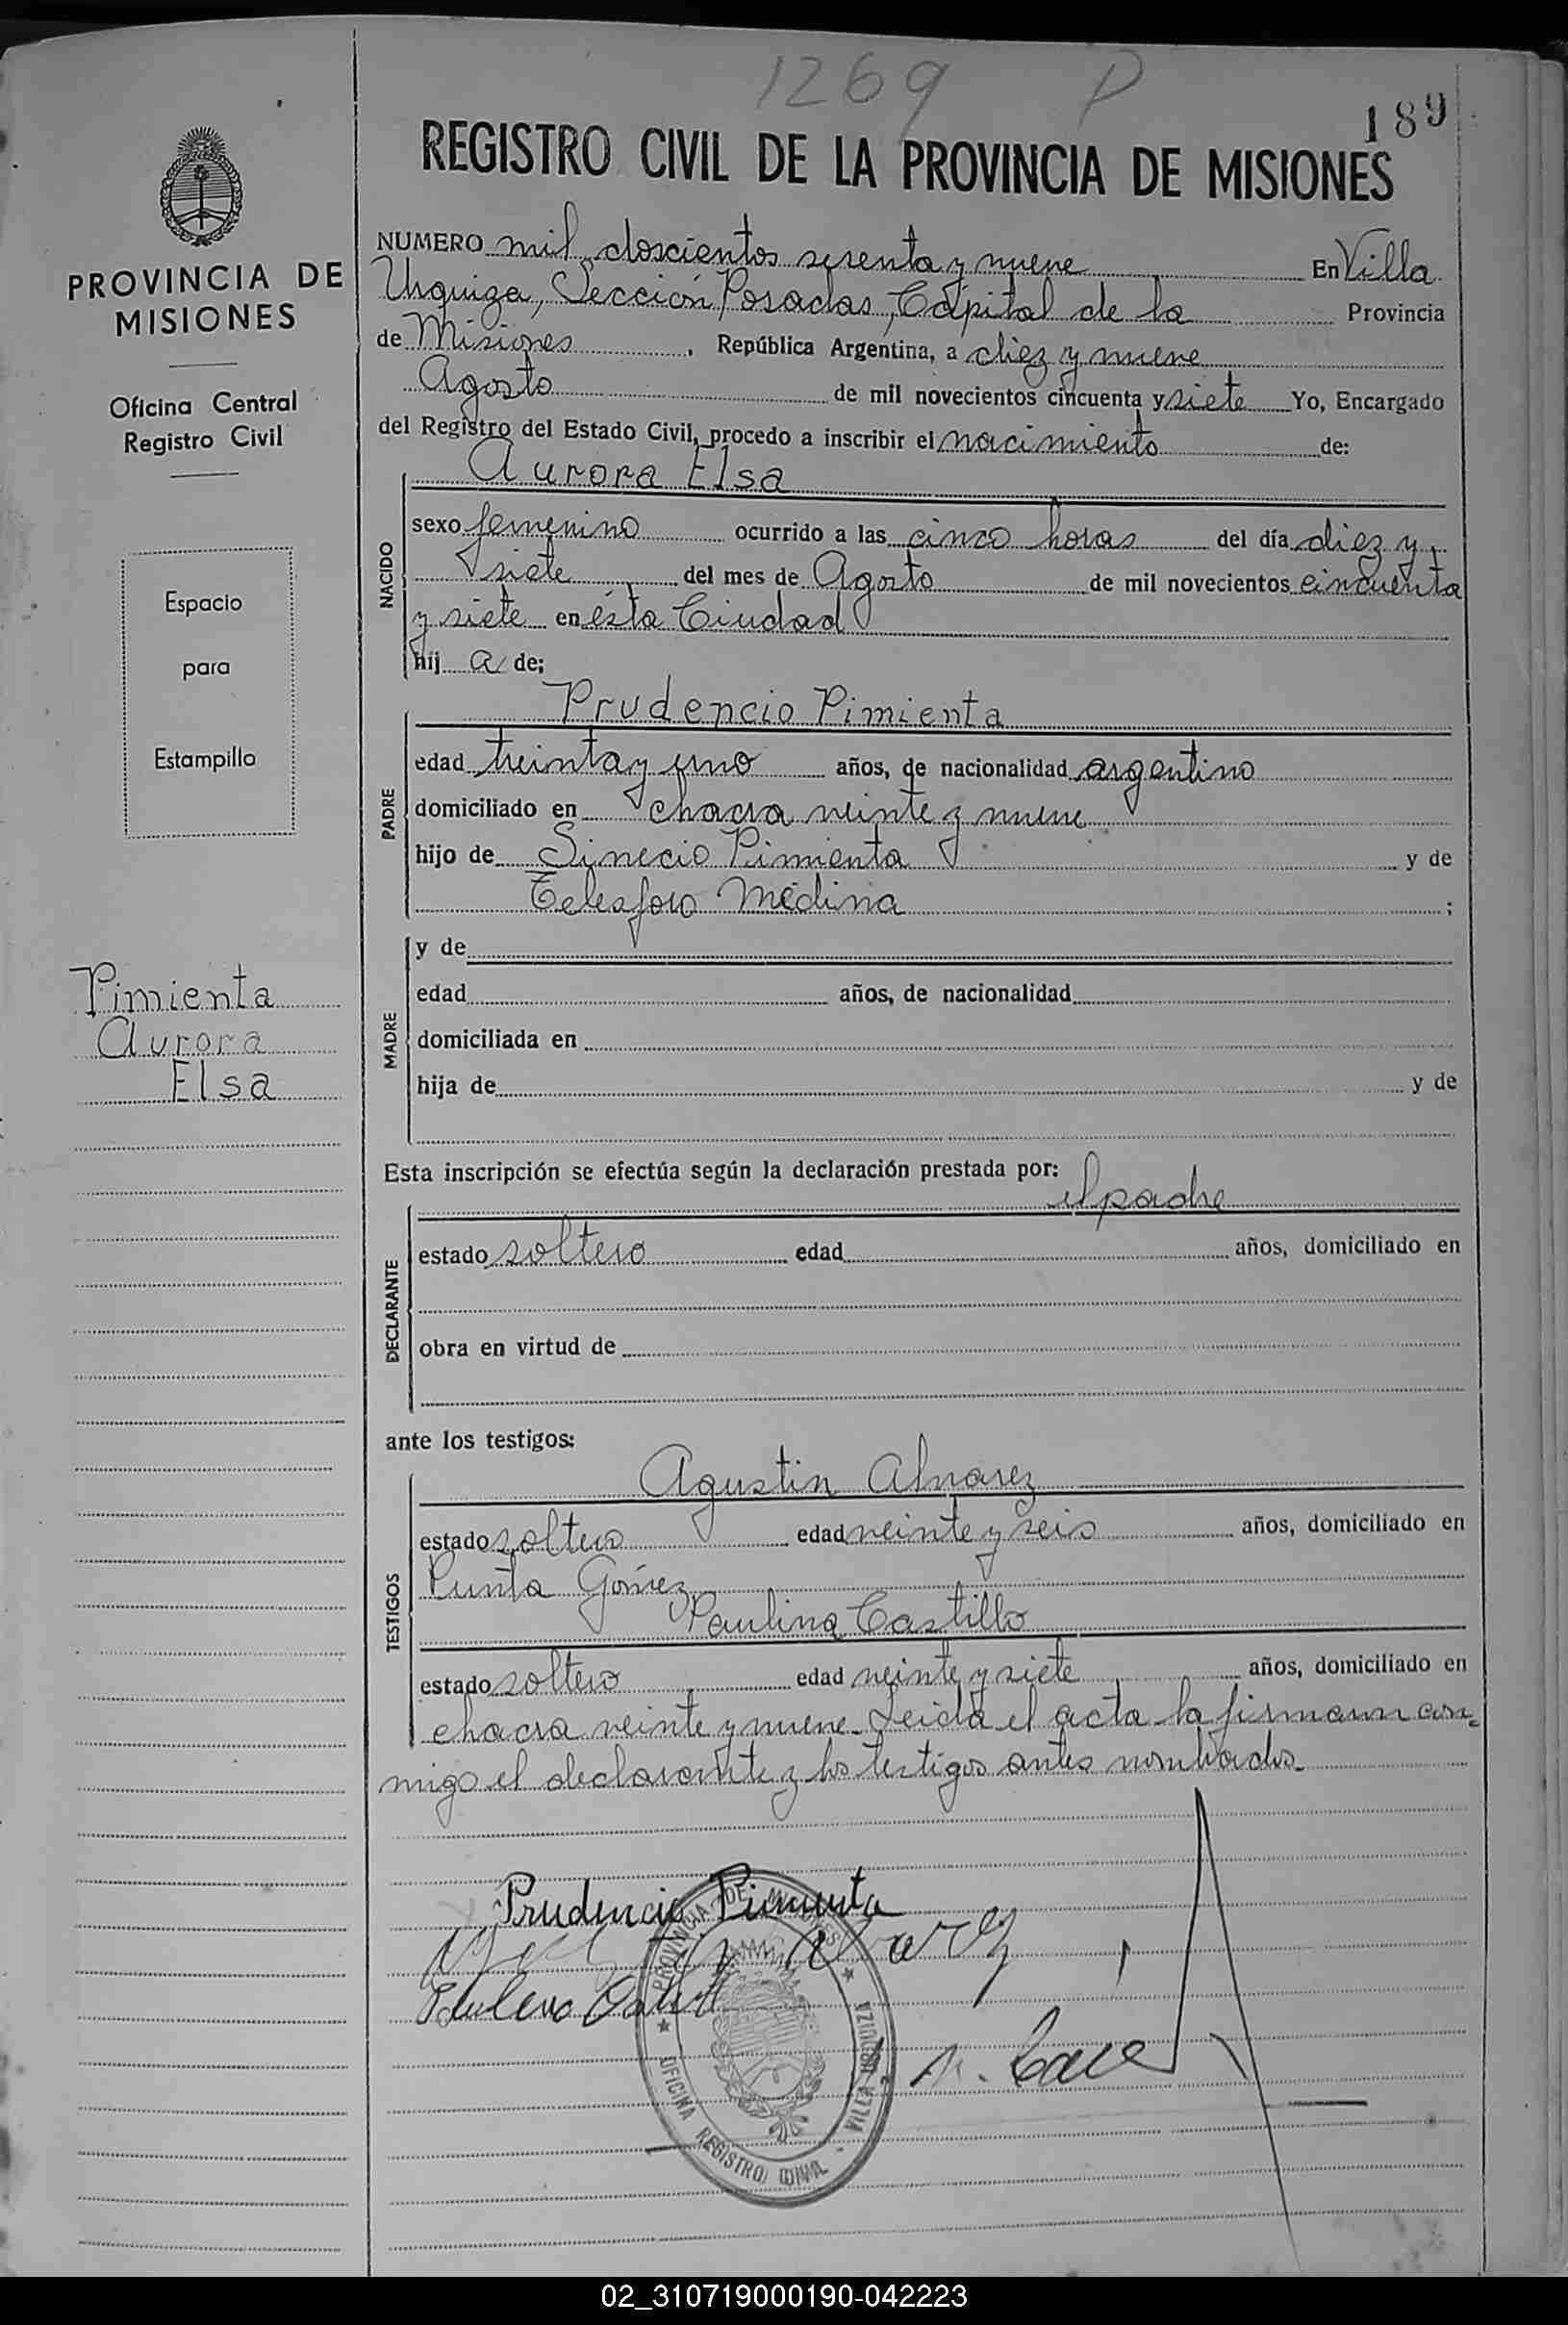 1269 P
189
REGISTRO CIVIL DE LA PROVINCIA DE MISIONES
PROVINCIA DE
MISIONES
Oficina Central
Registro Civil
Espacio
para
Estampillo
Pimienta
Aurora
Elsa
NUMERO mil doscientos sesenta y nueve En Villa
Urquiza, Sección Posadas, Capital de la Provincia
de Misiones, República Argentina, a diez y nueve
Agosto de mil novecientos cincuenta y siete Yo, Encargado
del Registro del Estado Civil, procedo a inscribir el nacimiento de:
Aurora Elsa
NACIDO
sexo femenino ocurrido a las cinco horas del día diez y
siete del mes de Agosto de mil novecientos cincuenta
y siete en ésta Ciudad
hij a de;
Prudencio Pimienta
PADRE
edad treinta y uno años, de nacionalidad argentino
domiciliado en chacra veinte y nueve
hijo de Sinecio Pimienta y de
Telesforo Medina ;
MADRE
y de
edad años, de nacionalidad
domiciliada en
hija de y de
Esta inscripción se efectúa según la declaración prestada por:
el padre
DECLARANTE
estado soltero edad años, domiciliado en
obra en virtud de
ante los testigos:
Agustin Alvarez
TESTIGOS
estado soltero edad veinte y seis años, domiciliado en
Punta Gomez
Paulina Castillo
estado soltero edad veinte y siete años, domiciliado en
chacra veinte y nueve. Leida el acta la firmann con=
migo el declarante y los testigos antes nombrados.
Prudencio Pimienta
PROVINCIA DE MISIONES
OFICINA REGISTRO CIVIL - VILLA URQUIZA
02_310719000190-042223